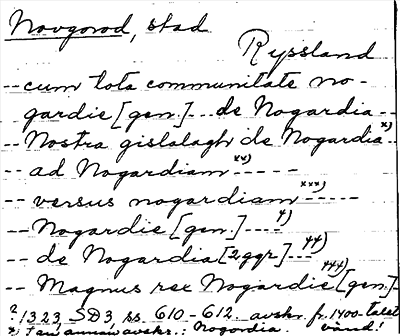 Novgorod, stad
Ryssland
-- cum tota communitate no-
gardie [gen.] --- de Nogardia --
-- Nostra gislalagh de Nogardia x)
-- ad Nogardiam xx) -----
-- versus nogardiam xxx) -----
-- Nogardie [gen.] ---- +)
-- de Nogardia [2 ggr] --- ++)
-- Magnus rex Nogardie [gen.] +++)
? 1323 SD3, ss. 610-612. avskr. fr. 1400-talet
x) I en annan avskr.: Nogordia. vänd!